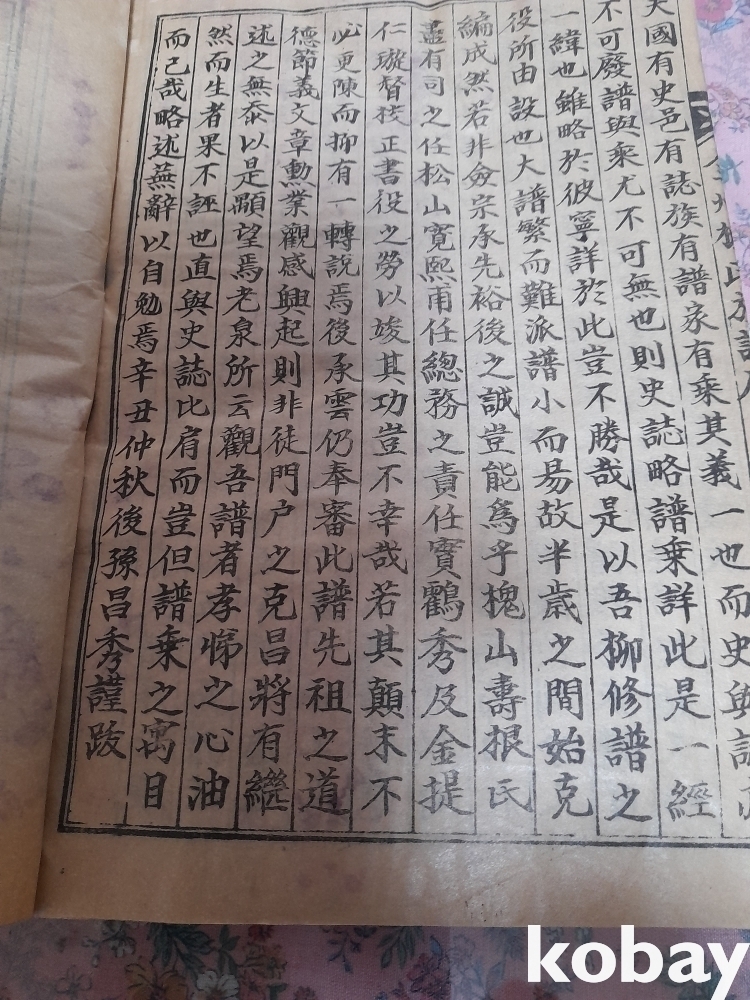 夫國有史邑有誌族有譜家有乘其義一也而史與誌
不可廢譜與乘尤不可無也則史誌略譜乘詳此是一經
一緯也雖略於彼寧詳於此豈不勝哉是以吾柳修譜之
役所由設也大譜繁而難派譜小而易故半歲之間始克
編成然若非僉宗承先裕後之誠豈能爲乎槐山壽根氏
盡有司之任松山寬熙甫任總務之責任實鶴秀及金提
仁璇督校正書役之勞以竣其功豈不幸哉若其顛末不
必更陳而抑有一轉說焉後承雲仍奉審此譜先祖之道
德節義文章勳業觀感興起則非徒門户之克昌將有繼
述之無忝以是顒望焉老泉所云觀吾譜者孝悌之心油
然而生者果不誣也直與史誌比肩而豈但譜乘之寓目
而已哉略述蕪辭以自勉焉辛丑仲秋後孫昌秀謹跋
kobay